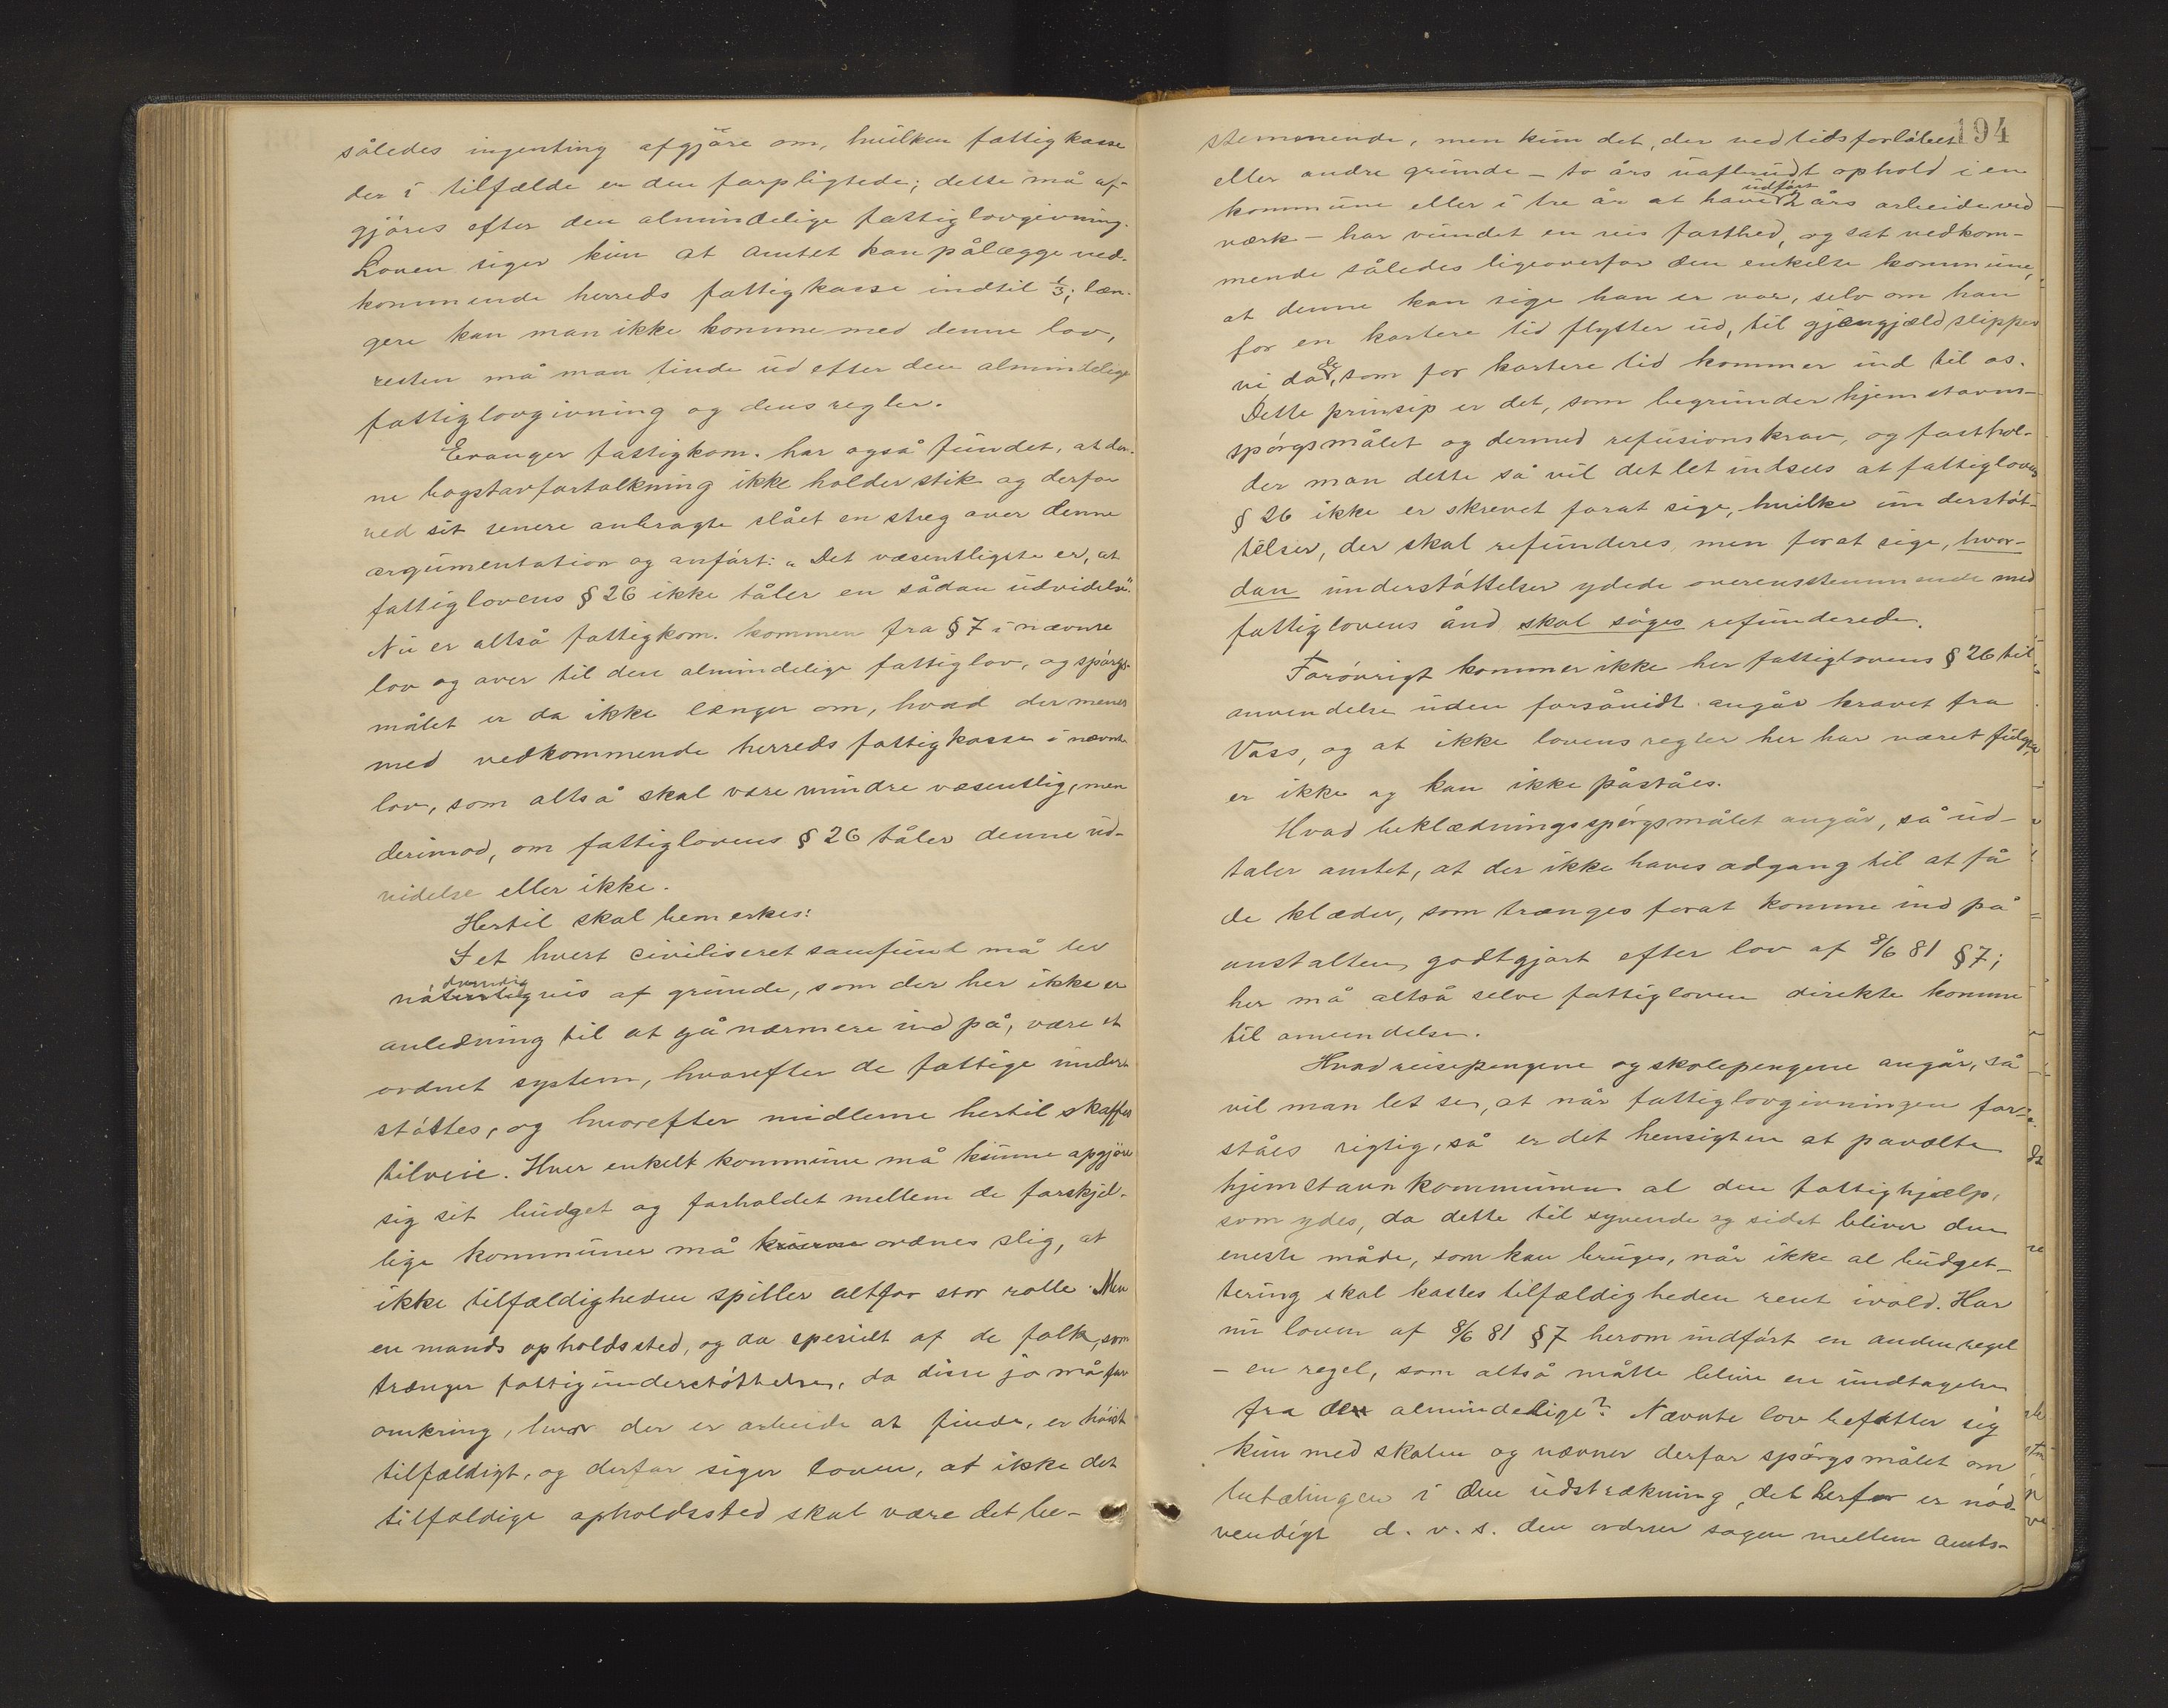 således ingenting afgjøre om, hvilken fattigkasse
der i tilfælde er den forpligtede; dette må af-
gjöres efter den almindelige fattiglovgivning.
Loven siger kun at amtet kan pålægge ved-
kommende herreds fattigkasse indtil 1/3; læn-
gere kan man ikke komme med denne lov,
resten må man finde ud efter den almindelige
fattiglovgivning og dens regler.
Evanger fattigkom. har også fundet, at den-
ne bogstavfortolkning ikke holder stik og derfor
ved sit senere anbragte slået en streg over denne
argumentation og anført: "Det væsentligste er, at
fattiglovens § 26 ikke tåler en sådan udvidelse".
Nu er altså fattigkom. kommen fra § 7 i nævnte
lov og over til den almindelige fattiglov, og spörgs-
målet er da ikke længer om, hvad der menes
med vedkommende herreds fattigkasse i nævnte
lov, som altså skal være mindre væsentlig, men
derimod, om fattiglovens § 26 tåler denne ud-
videlse eller ikke.
Hertil skal bemerkes:
I et hvert civiliseret samfund må der
nødvendigvis af grunde, som der her ikke er
anledning til at gå nærmere ind på, være et
ordnet system, hvorefter de fattige under-
støttes, og hvorefter midlerne hertil skaffes
tilveie. Hver enkelt kommune må kunne opgjøre
sig sit budget og forholdet mellem de forskjel-
lige kommuner må kunne ordnes slig, at
ikke tilfældigheden spiller altfor stor rolle. Men
en mands opholdssted, og da specielt af de folk, som
trænger fattigunderstøttelse, da disse jo må far
omkring, hvor der er arbeide at finde, er höist
tilfældigt, og derfor siger loven, at ikke det
tilfældige opholdssted skal være det be-
194
stemmende, men kun det, der ved tidsforløbet
eller andre grunde – to års uafbrudt ophold i en
kommune eller i tre år at have udført 2 års arbeide ved
værk – har vundet en vis fasthed, og sat vedkom-
mende således ligeoverfor den enkelte kommune,
at denne kan sige han er vor, selv om han
for en kortere tid flytter ud, til gjengjæld slipper
vi da de, som for kortere tid kommer ind til os.
Dette prinsip er det, som begrunder hjemstavns-
spörgsmålet og dermed refusionskrav, og fasthol-
der man dette så vil det let indsees at fattiglovens
§ 26 ikke er skrevet forat sige, hvilke understöt-
telser, der skal refunderes, men forat sige, hvor-
dan understøttelser ydede overensstemmende med
fattiglovens ånd skal søges refunderede.
Forøvrigt kommer ikke her fattiglovens § 26 til
anvendelse uden forsåvidt angår kravet fra
Voss, og at ikke lovens regler her har været fulgte,
er ikke og kan ikke påståes.
Hvad beklædningsspörgsmålet angår, så ud-
taler amtet, at der ikke haves adgang til at få
de klæder, som trænges forat komme ind på
anstalten, godtgjort efter lov af 8/6 81 § 7;
her må altså selve fattigloven direkte komme
til anvendelse.
Hvad reisepengene og skolepengene angår, så
vil man let se, at når fattiglovgivningen for-
ståes rigtig, så er det hensigten at påvælte
hjemstavnkommunen al den fattighjælp,
som ydes, da dette til syvende og sidst bliver den
eneste måde, som kan bruges, når ikke al budget-
tering skal kastes tilfældigheden rent ivold. Har
nu loven af 8/6 81 § 7 herom indført en anden regel
– en regel, som altså måtte blive en undtagelse
fra den almindelige? Nævnte lov befatter sig
kun med skolen og nævner derfor spörgsmålet om
betalingen i den udstrækning, det herfor er nød-
vendigt d. v. s. den ordner sagen mellem amts-